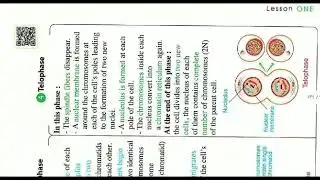 Lesson ONE
4 Telophase
In this phase :
- The spindle fibers disappear.
- A nuclear membrane is formed
around the chromosomes at
each of the cell's poles leading
to the formation of two new
nuclei.
- A nucleolus is formed at each
pole of the cell.
- The chromosomes inside each
nucleus convert into
a chromatin reticulum again.
At the end of this phase :
the cell divides into two new
cells, the nucleus of each
of them contains complete
number of chromosomes (2N)
of the parent cell.
Nucleolus
Nuclear
membrane
Telophase
phase
of each
chromatids
each other.
two identical
chromosomes
one
chromatid)
the cell's